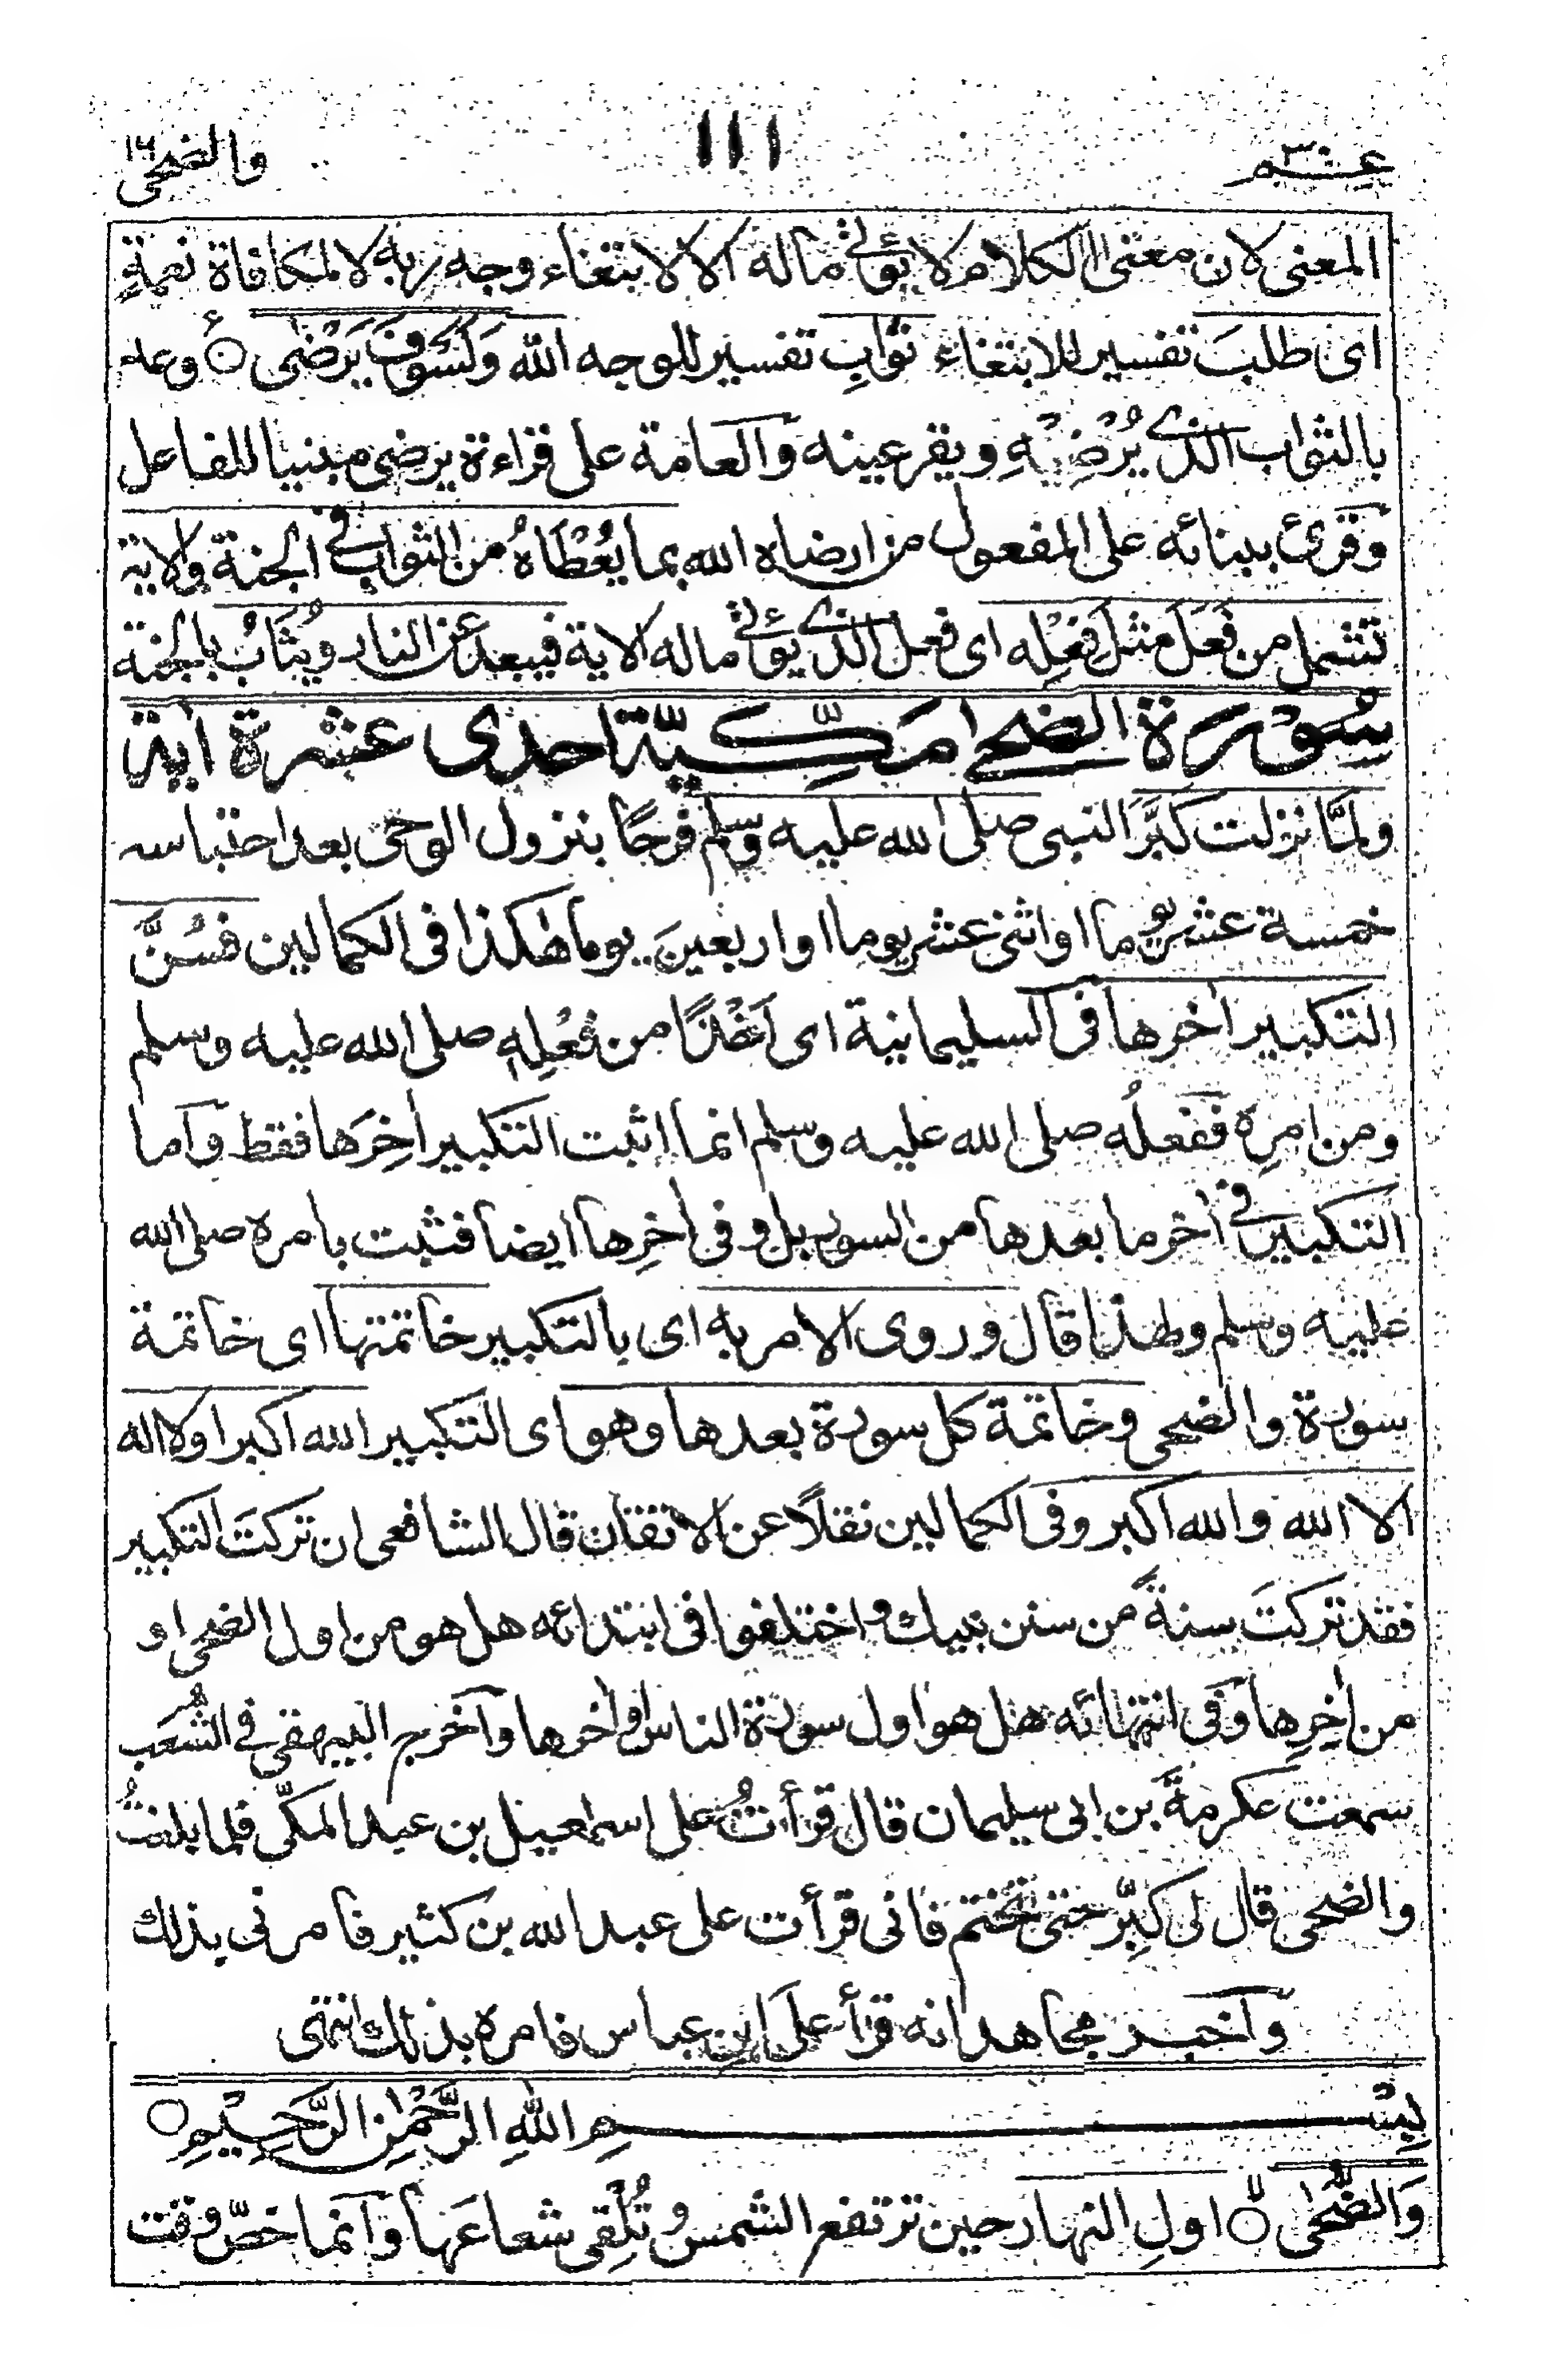 عم٣٠ ١١١ والضحى١٦
المعنى لان معنى الكلام لا يؤتى ماله الا لابتغاء وجه ربه لا لمكافاة نعمةٍ
اى طلبَ تفسير للابتغاء ثوابِ تفسير للوجه الله وَلَسَوْفَ يَرْضٰى ○ وعد
بالثواب الذى يُرْضِيْهِ ويقر عينه والعامة على قراءة يرضى مبنيا للفاعل
وقرئ ببنائه على المفعول من ارضاه الله بما يُعْطَاهُ من الثواب فى الجنة والاية
تشمل من فَعَلَ مثل فِعْلِه اى فعل الذى يؤتى ماله الاية فيبعد عن النار ويُثَابُ بالجنة
سُوْرَة الضحى مَكِّيَّة احدى عشرة اٰية
ولَمَّا نزلت كَبَّرَ النبى صلى الله عليه وسلم فرحًا بنزول الوحى بعد احتباسه
خمسة عشر يوما او اثنى عشر يوما او اربعينَ يوما هٰكذا فى الكمالين فسُنَّ
التكبير اٰخرها فى السليمانية اى اَخْذًا من فِعْلِهٖ صلى الله عليه وسلم
ومن امرِه ففعلُه صلى الله عليه وسلم انما اثبت التكبير اٰخِرَها فقط واما
التكبير فى اٰخر ما بعدها من السور بل وفى اٰخرِها ايضا فثبت بامره صلى الله
عليه وسلم ولهذا قال وروى الامر به اى بالتكبير خاتمتها اى خاتمة
سورة والضحى وخاتمة كل سورة بعدها وهو اى التكبير الله اكبر او لا اله
الا الله والله اكبر وفى الكمالين نقلًا عن الاتقان قال الشافعى ان تركتَ التكبير
فقد تركتَ سنةً من سنن نبيك واختلفوا فى ابتدائه هل هو من اول الضحى او
من اٰخِرِها وفى انتهائه هل هو اول سورة الناس او اٰخرها واخرج البيهقى فى الشُّعَب
سمعت عكرمةَ بن ابى سليمان قال قرأتُ على اسمٰعيل بن عبد المكّى فلما بلغتُ
والضحى قال لى كبِّر حتى تختم فانى قرأت على عبد الله بن كثير فامرنى بذلك
واخبر مجاهد انه قرأ على ابن عباس فامره بذلك انتهى
بِسْمِ اللهِ الرَّحْمٰنِ الرَّحِيْمِ ○
وَالضُّحٰى ○ اولِ النهار حين ترتفع الشمس وتُلْقِى شعاعَها وانما خصّ وقت